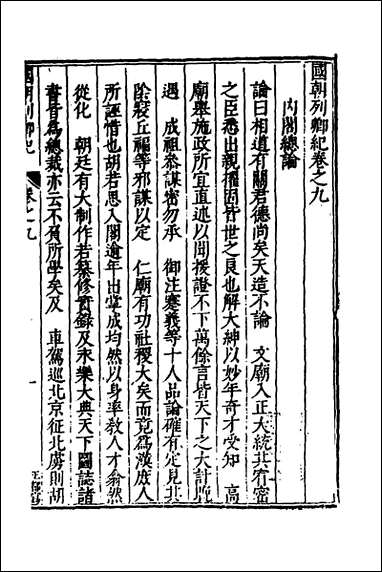 國朝列卿紀卷之九
內閣總論
論曰相道有關君德尚矣天造不論　文廟入正大統北有密
之臣悉出親擢固皆世之良也解大紳以妙年奇才受知　高
廟舉施政所宜直述以聞援證不下萬餘言皆天下之大計既
遇　成祖恭謀密勿承　御注蹇義等十人品論確有定見其
陰寢丘福等邪謀以定　仁廟有功社稷大矣而竟為漢庶人
所誣惜也胡若思入閣逾年出掌成均然以身率教人才翕然
從化　朝廷有大制作若纂修實錄及永樂大典天下圖誌諸
書皆為總裁亦云不負所學矣及　車駕巡北京征北虜則胡
國朝列卿紀
卷之九
一